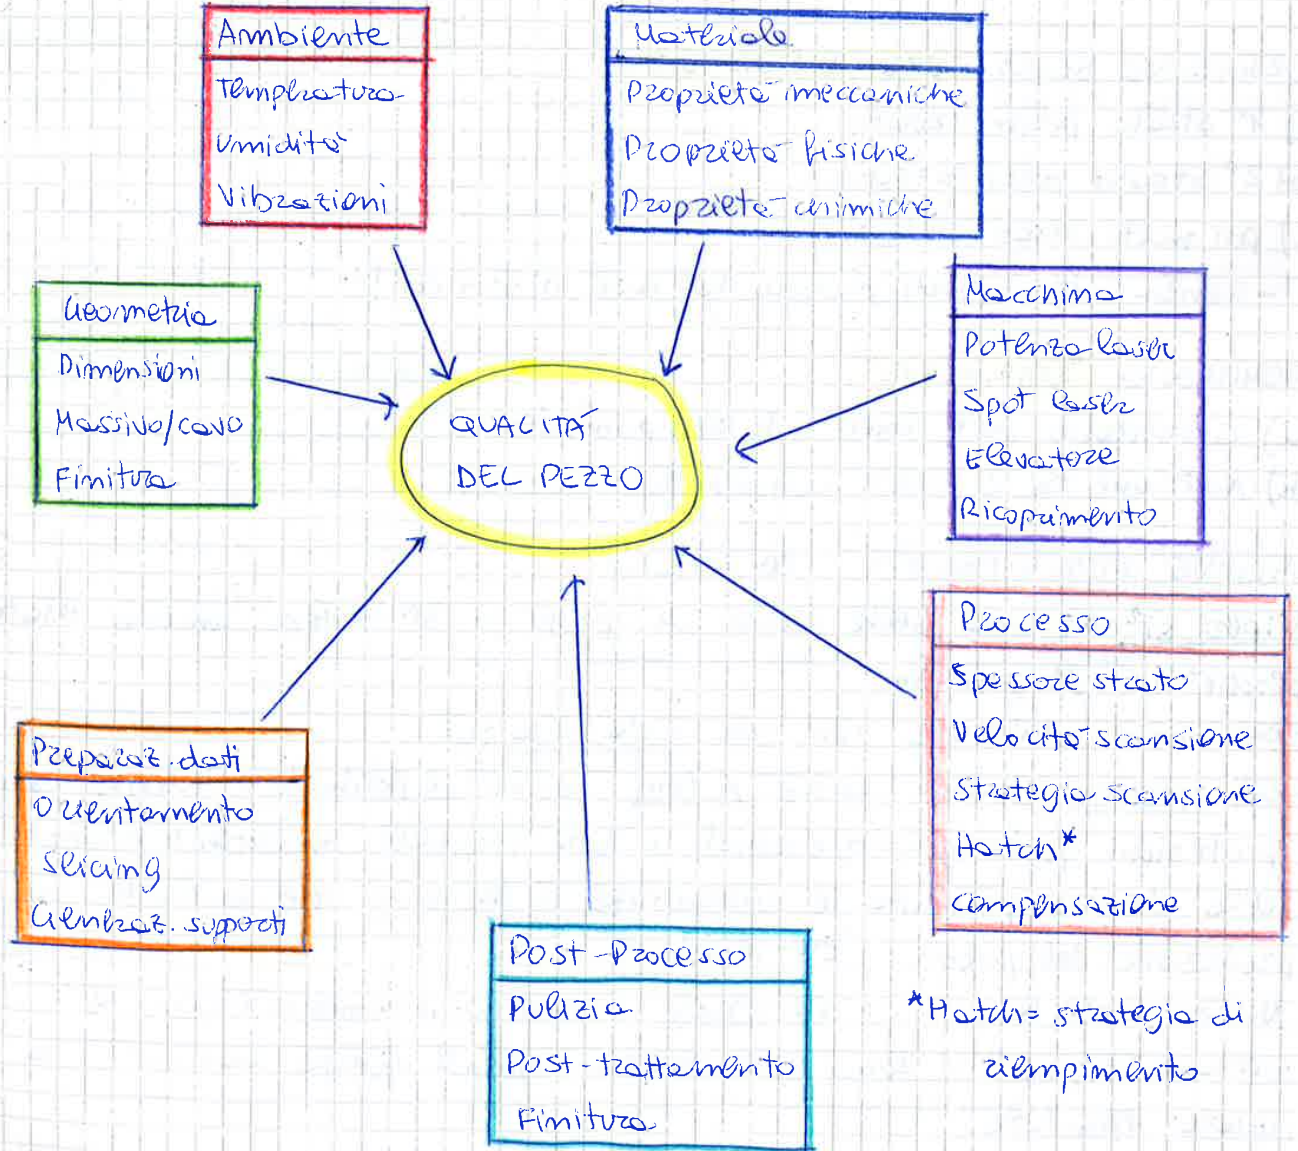 Ambiente
Temperatura
Umidità
Vibrazioni
Materiale
Proprietà meccaniche
Proprietà fisiche
Proprietà chimiche
Geometria
Dimensioni
Massivo/cavo
Finitura
QUALITÀ
DEL PEZZO
Macchina
Potenza laser
Spot laser
Elevatore
Ricoprimento
Processo
Spessore strato
Velocità scansione
Strategia scansione
Hatch*
Compensazione
Preparaz. dati
Orientamento
Slicing
Generaz. supporti
Post-Processo
Pulizia
Post-trattamento
Finitura
*Hatch= strategia di
riempimento